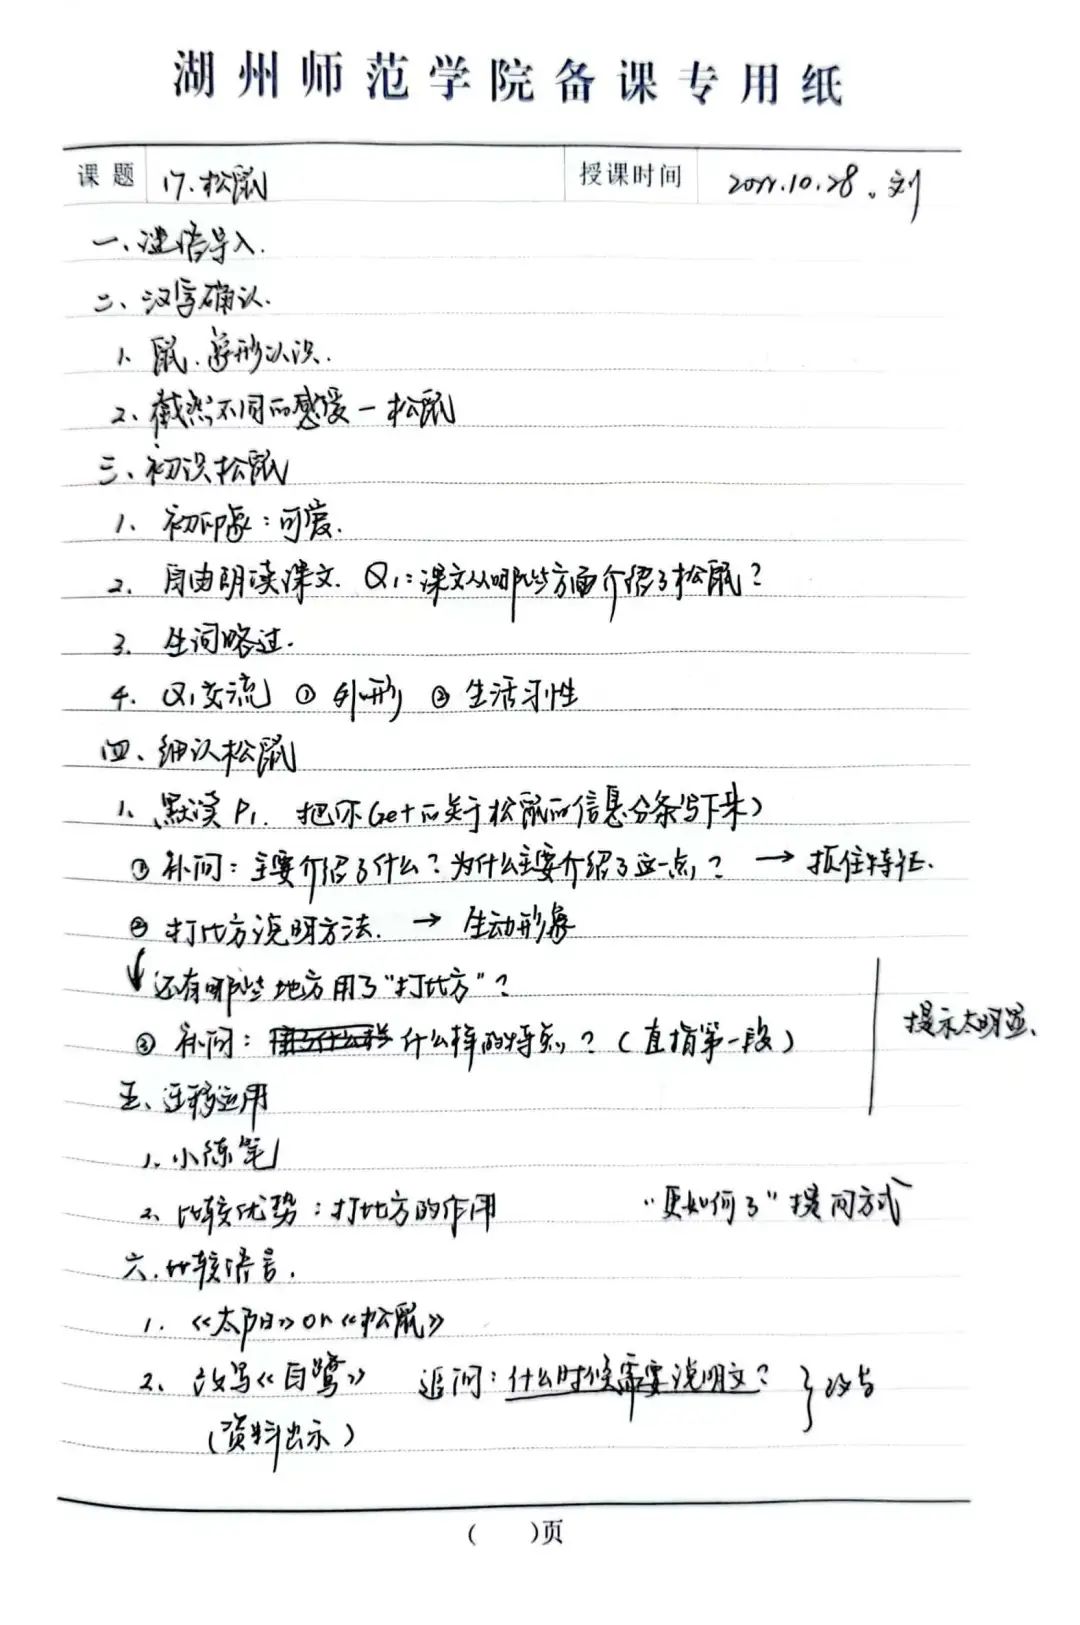 湖州师范学院备课专用纸
课题 17.松鼠 授课时间 2022.10.28。刘
一、谜语导入.
二、汉字确认.
1. 鼠.字形认识.
2. 截然不同的感受－松鼠
三、初识松鼠
1. 初印象：可爱.
2. 自由朗读课文. Q1：课文从哪些方面介绍了松鼠？
3. 生词略过.
4. Q1交流 ① 外形 ② 生活习性
四、细识松鼠
1. 默读P1. 把你Get的关于松鼠的信息分条写下来)
① 补问：主要介绍了什么？为什么主要介绍了这一点？→ 抓住特征.
② 打比方说明方法. → 生动形象
↓还有哪些地方用了“打比方”？
③ 补问：什么样的特点？（直指第一段）
提示太明显.
五、迁移运用
1. 小练笔
2. 比较优势：打比方的作用 “更如何了”提问方式
六.比较语言.
1. 《太阳》on《松鼠》
2. 改写《白鹭》 追问：什么时候需要说明文？ } 改写
(资料出示)
( )页